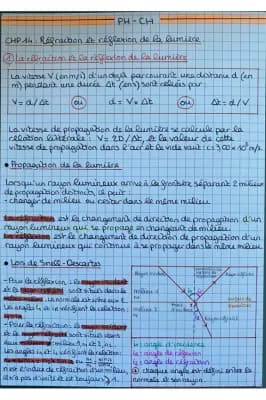 PH - CH
CHP 14 : Réfraction et réflexion de la lumière
① La réfraction et la réflexion de la lumière
La vitesse V (en m/s) d'un objet parcourant une distance d (en
m) pendant une durée Δt (en s) sont reliés par :
V = d/Δt ou d = V × Δt ou Δt = d/V
La vitesse de propagation de la lumière se calcule par la
relation littérale : V = 2D/Δt, et la valeur de cette
vitesse de propagation dans l'air et le vide vaut : c = 3,00 × 10⁸ m/s.
• Propagation de la lumière
Lorsqu'un rayon lumineux arrive à la frontière séparant 2 milieux
de propagation distincts, il peut :
- changer de milieu ou rester dans le même milieu.
La réfraction est le changement de direction de propagation d'un
rayon lumineux qui se propage en changeant de milieu.
La réflexion est le changement de direction de propagation d'un
rayon lumineux qui continue à se propager dans le même milieu.
• Lois de Snell-Descartes
- Pour la réflexion : le rayon
sont situés dans le
même milieu
Les angles i₁ et r vérifient la relation :
- Pour la réfraction : le rayon
sont situés dans
milieux
Les angles i₁ et i₂ vérifient la relation :
n est l'indice de réfraction d'un milieu,
il n'a pas d'unité et est toujours ⩾ 1.
milieu 1
milieu 2
rayon réfracté
i₁ : angle d'incidence
r : angle de réflexion
i₂ : angle de réfraction
chaque angle est défini entre la
normale et son rayon.